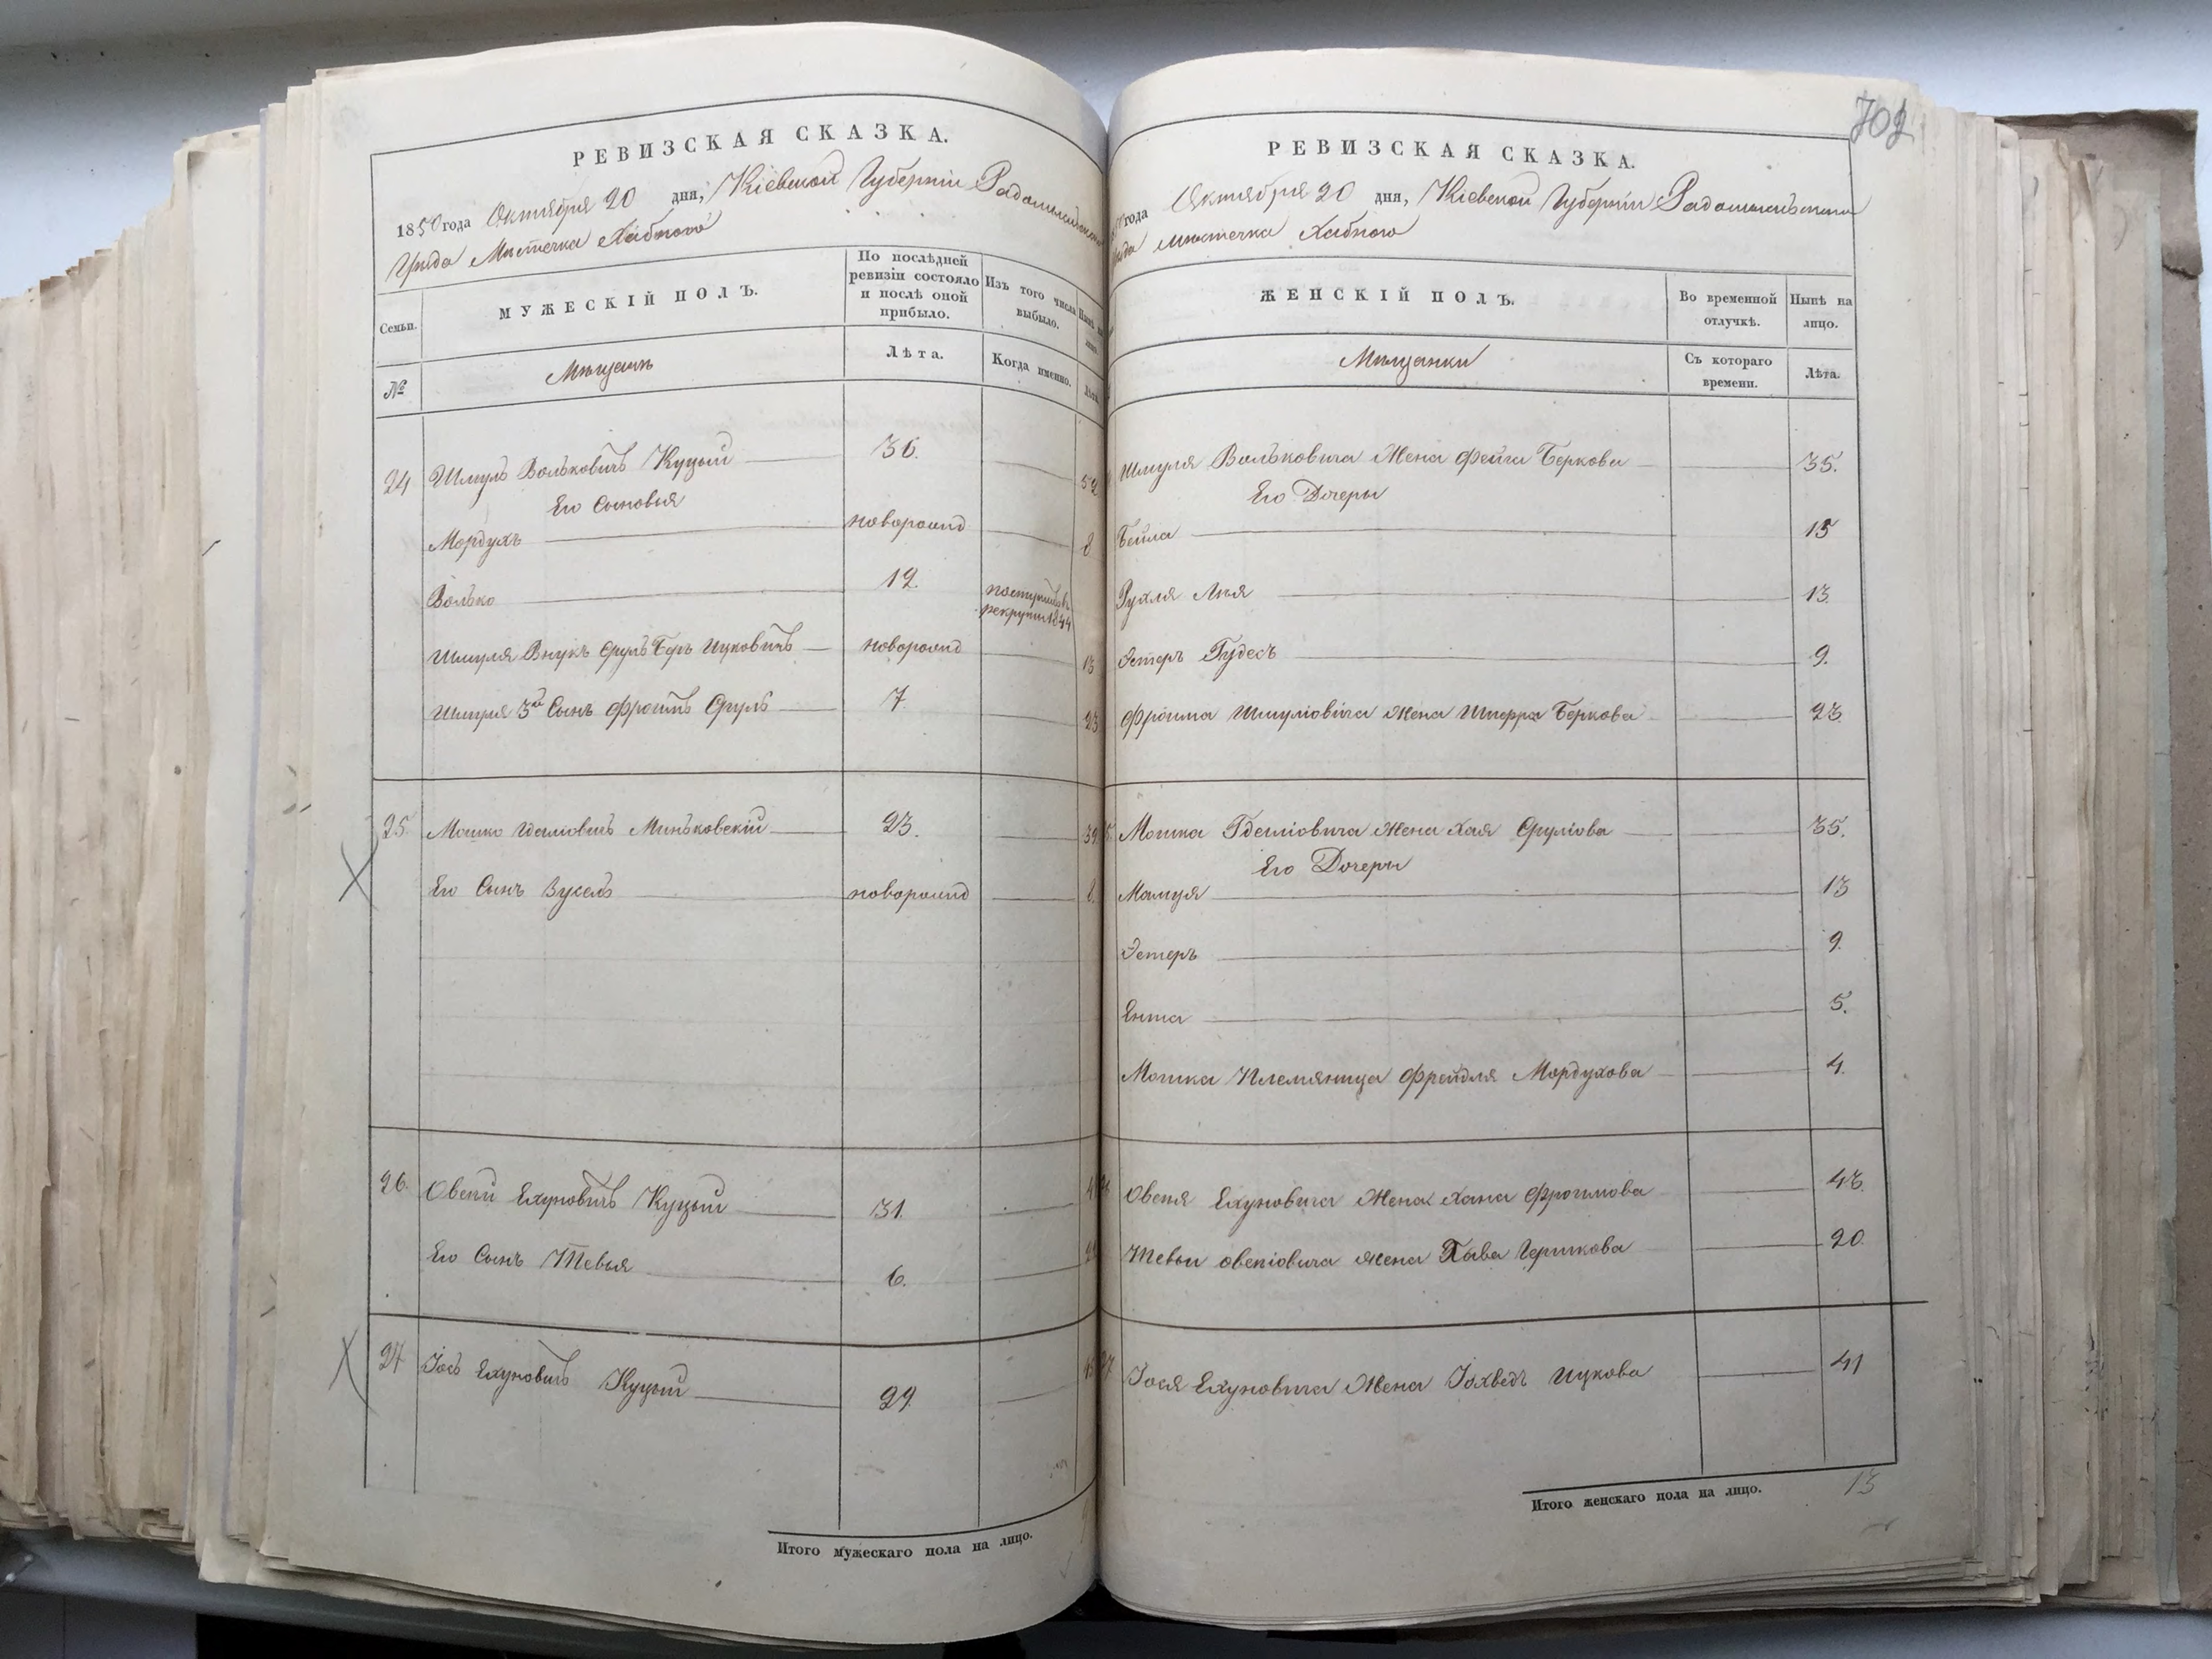 РЕВИЗСКАЯ СКАЗКА.
1850 года Октября 20 дня, Кіевской Губерніи Радомысльскаго
Уезда Местечка Хабного
Семьи.
МУЖЕСКІЙ ПОЛЪ.
По последней ревизіи состояло и после оной прибыло.
Изъ того числа выбыло.
№
Мещане
Лѣта.
Когда именно.
24 Шмуль Вольковичъ Куцый 36. 52
Его Сыновья
Мордухъ новорожд 8
Волько 12. поступилъ въ рекруты 1844
Шмуля Внукъ Сруль Беръ Ицковичъ новорожд 13
Шмуля 3й Сынъ Фроимъ Сруль 7. 23
25. Мошко Иделіовичъ Миньковскій 23. 39
Его Сынъ Зусель новорожд 8.
26. Овсей Ехуновичъ Куцый 31.
Его Сынъ Тевья 6. 22
27 Іось Ехуновичъ Куцый 29. 45
Итого мужескаго пола на лицо.
702
РЕВИЗСКАЯ СКАЗКА.
года Октября 20 дня, Кіевской Губерніи Радомысльскаго
Уезда местечка Хабного
ЖЕНСКІЙ ПОЛЪ.
Во временной отлучкѣ.
Нынѣ на лицо.
Мещанки
Съ котораго времени.
Лѣта.
Шмуля Вольковича Жена Фейга Беркова 35.
Его Дочеры
Бейла 15
Рухля Лея 13.
Эстеръ Гудесъ 9.
Фроима Шмуліовича жена Шпрра Беркова 23.
Мошка Иделіовича Жена Хая Сруліова 35.
Его Дочеры
Малця 13
Эстеръ 9.
Ента 5.
Мошка Племяница Фрейдля Мордухова 4.
Овсея Ехуновича Жена Хана Фроимова 43.
Тевьи Овсеіовича жена Хава Гершкова 20.
27 Іося Ехуновича Жена Іохведъ Ицкова 41
Итого женскаго пола на лицо. 13